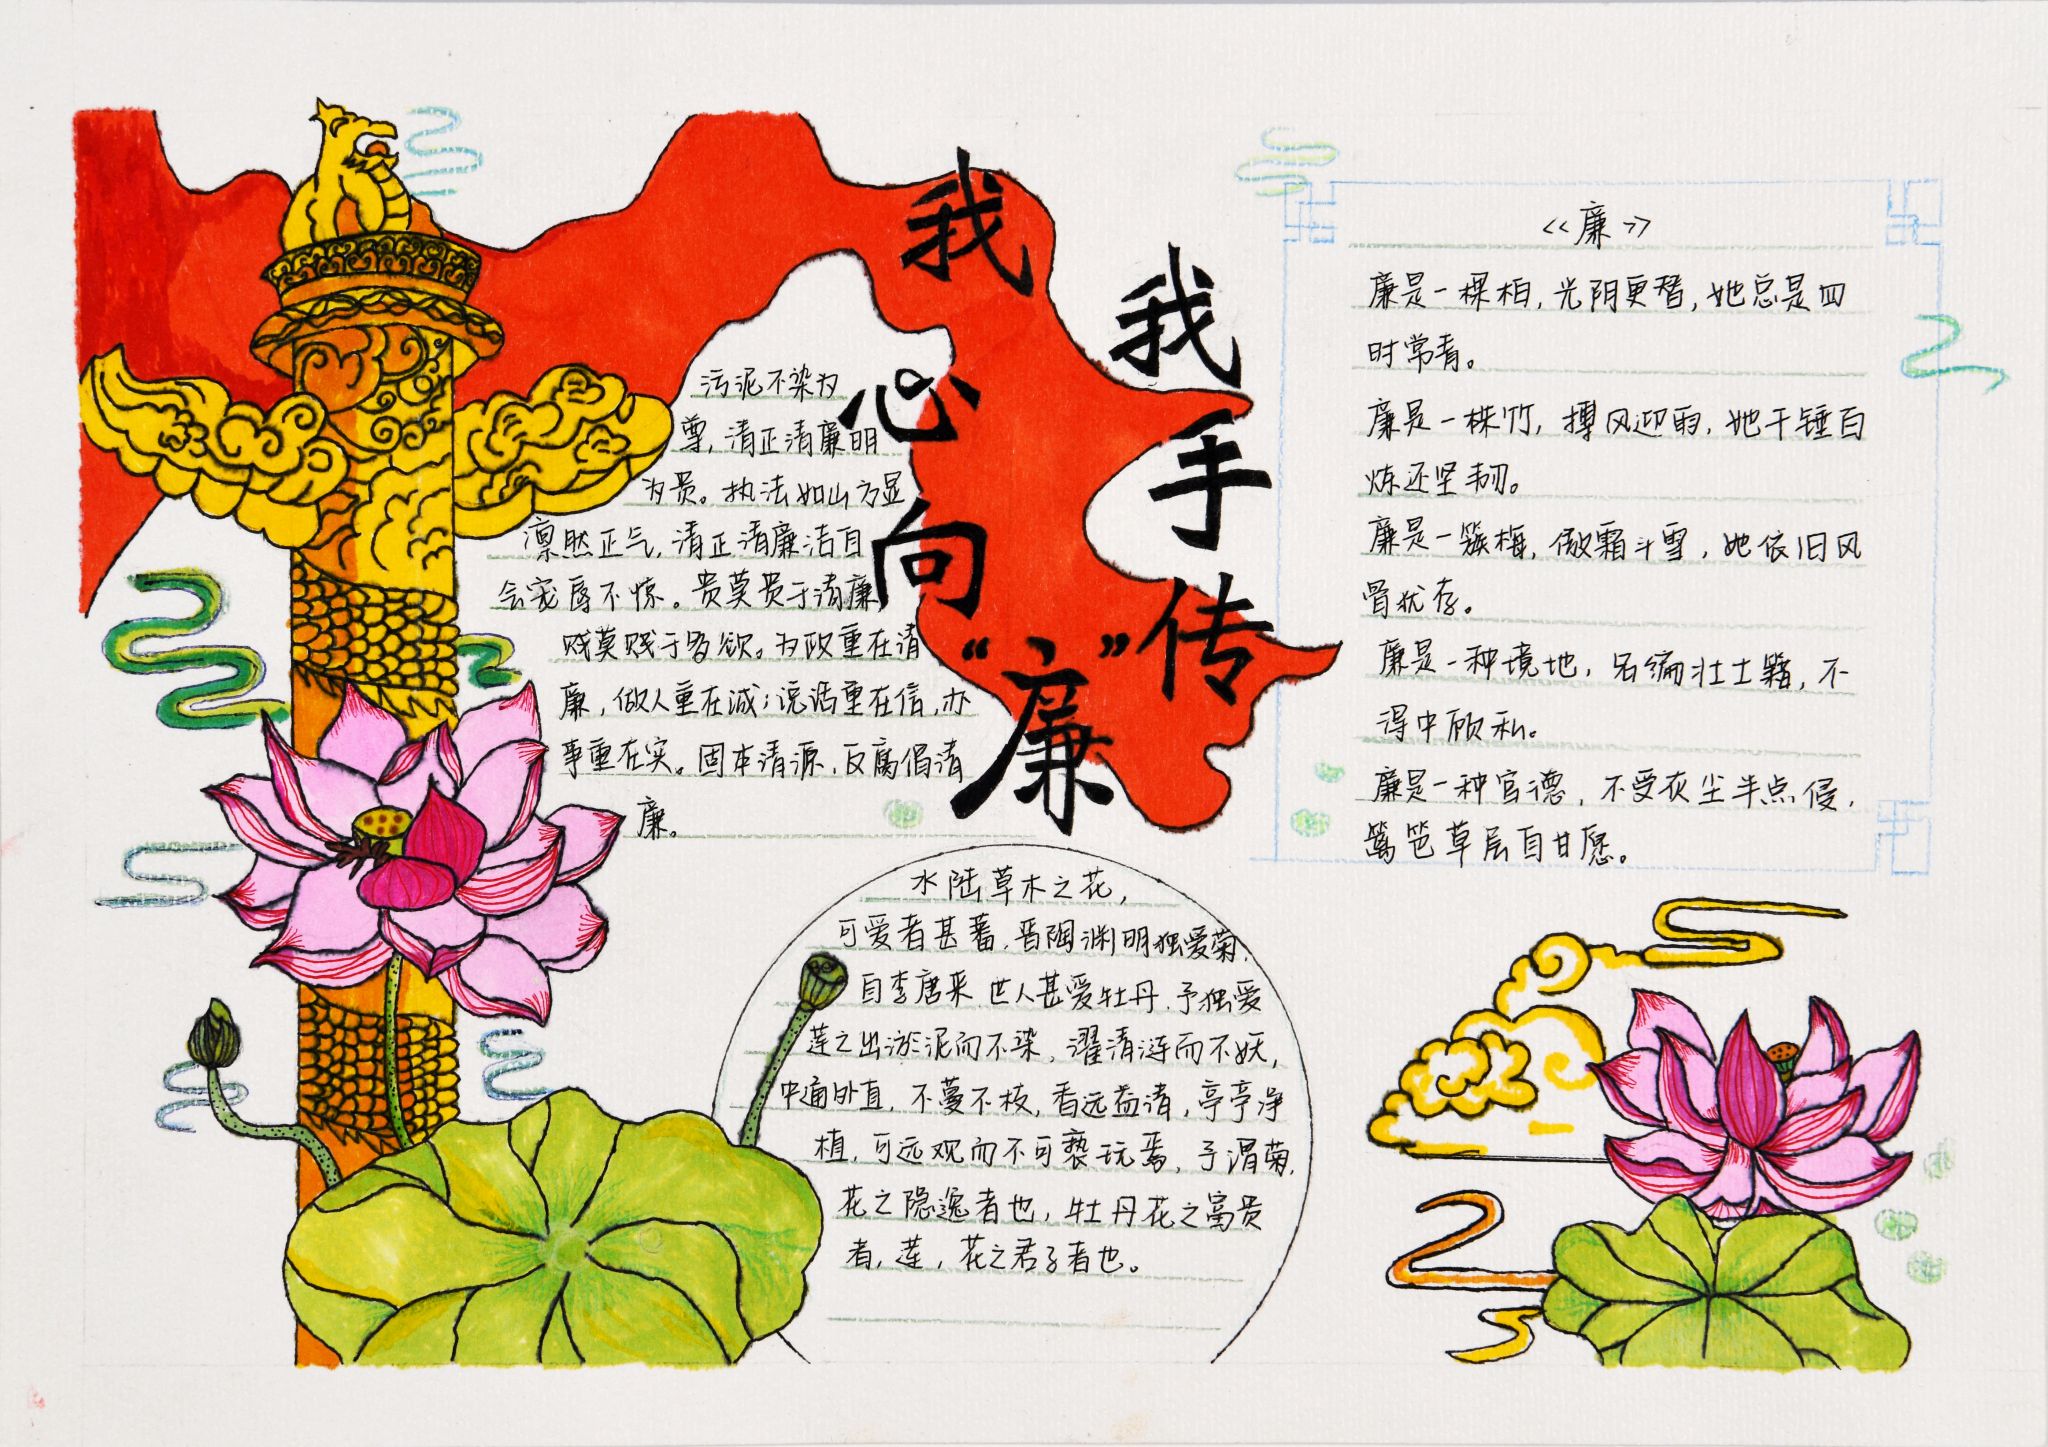 我心向“廉”
我手传
污泥不染为
尊，清正清廉明
为贵。执法如山方显
凛然正气，清正清廉洁自
会宠辱不惊。贵莫贵于清廉，
贱莫贱于多欲。为政重在清
廉，做人重在诚；说话重在信，办
事重在实。固本清源，反腐倡清
廉。
水陆草木之花，
可爱者甚蕃，晋陶渊明独爱菊，
自李唐来，世人甚爱牡丹，予独爱
莲之出淤泥而不染，濯清涟而不妖，
中通外直，不蔓不枝，香远益清，亭亭净
植，可远观而不可亵玩焉，予谓菊，
花之隐逸者也，牡丹花之富贵
者，莲，花之君子者也。
《廉》
廉是一棵柏，光阴更替，她总是四
时常青。
廉是一株竹，搏风迎雨，她千锤百
炼还坚韧。
廉是一簇梅，傲霜斗雪，她依旧风
骨犹存。
廉是一种境地，名编壮士籍，不
得中顾私。
廉是一种官德，不受灰尘半点侵，
篱笆草层自甘愿。